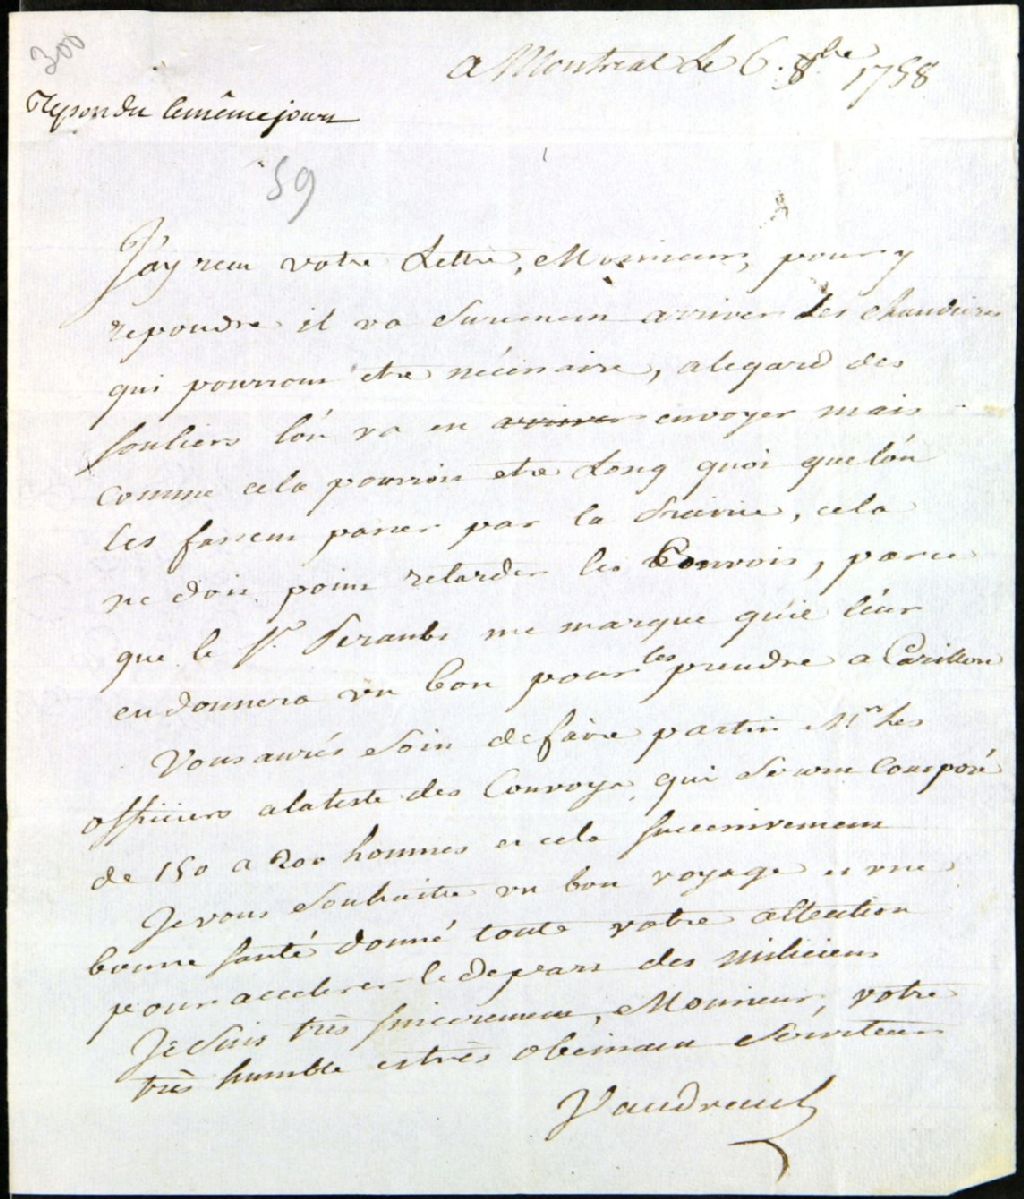 300
a Montreal le 6. 8bre 1758
Repondu le même jour
59
J'ay recu votre Lettre, Monsieur, pour y
repondre il va surement arriver des chaudieres
qui pourront être nécéssaire, a legard des
souliers l'on va en arriver envoyer mais
comme cela pourroit etre Long quoi que l'on
les fassent passer par la Prairie, cela
ne doit point retarder les Convois, parce
que le Sr. me marque qu'il leur
en donnera un bon pour les prendre a Carillon
Vous aurés soin de faire partir Mrs les
officiers a la teste des Convoys, qui seront composé
de 150 a 200 hommes et cela successivement
Je vous souhaite un bon voyage et une
bonne santé donné toute votre attention
pour accelerer le depart des miliciens
Je suis très sincerement, Monsieur, votre
très humble et très obeissant serviteur
Vaudreuil